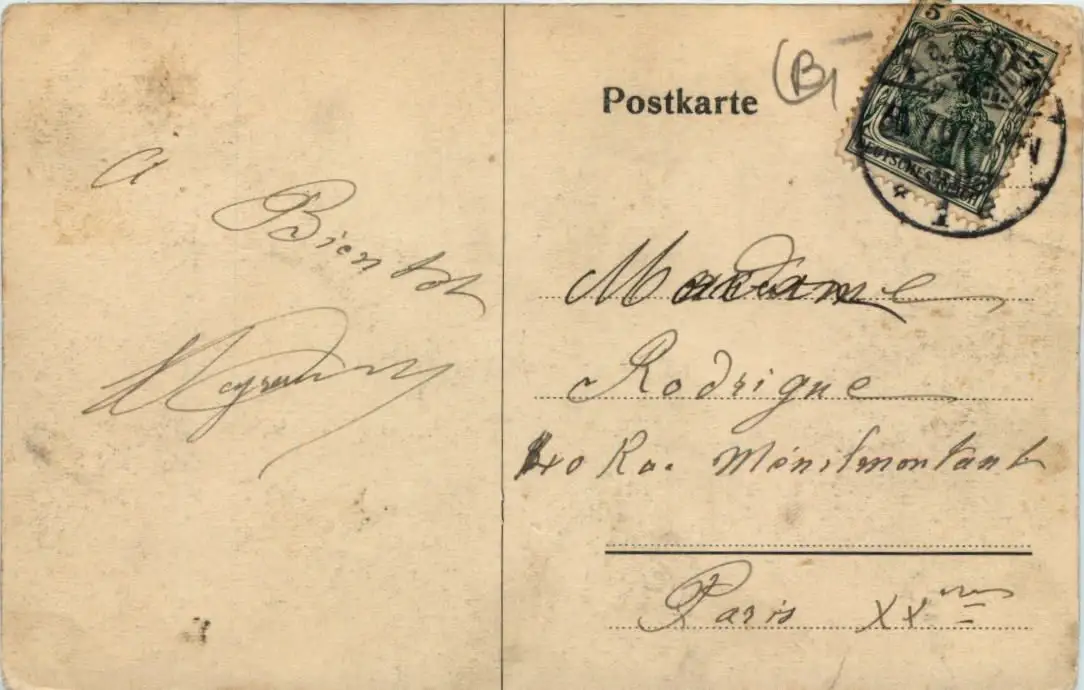 A
Bientot
Postkarte
(B)
5 5
DEUTSCHES REICH
7.07
1
Madame
Rodrigue
40 Ru. Ménilmontant
Paris XXme